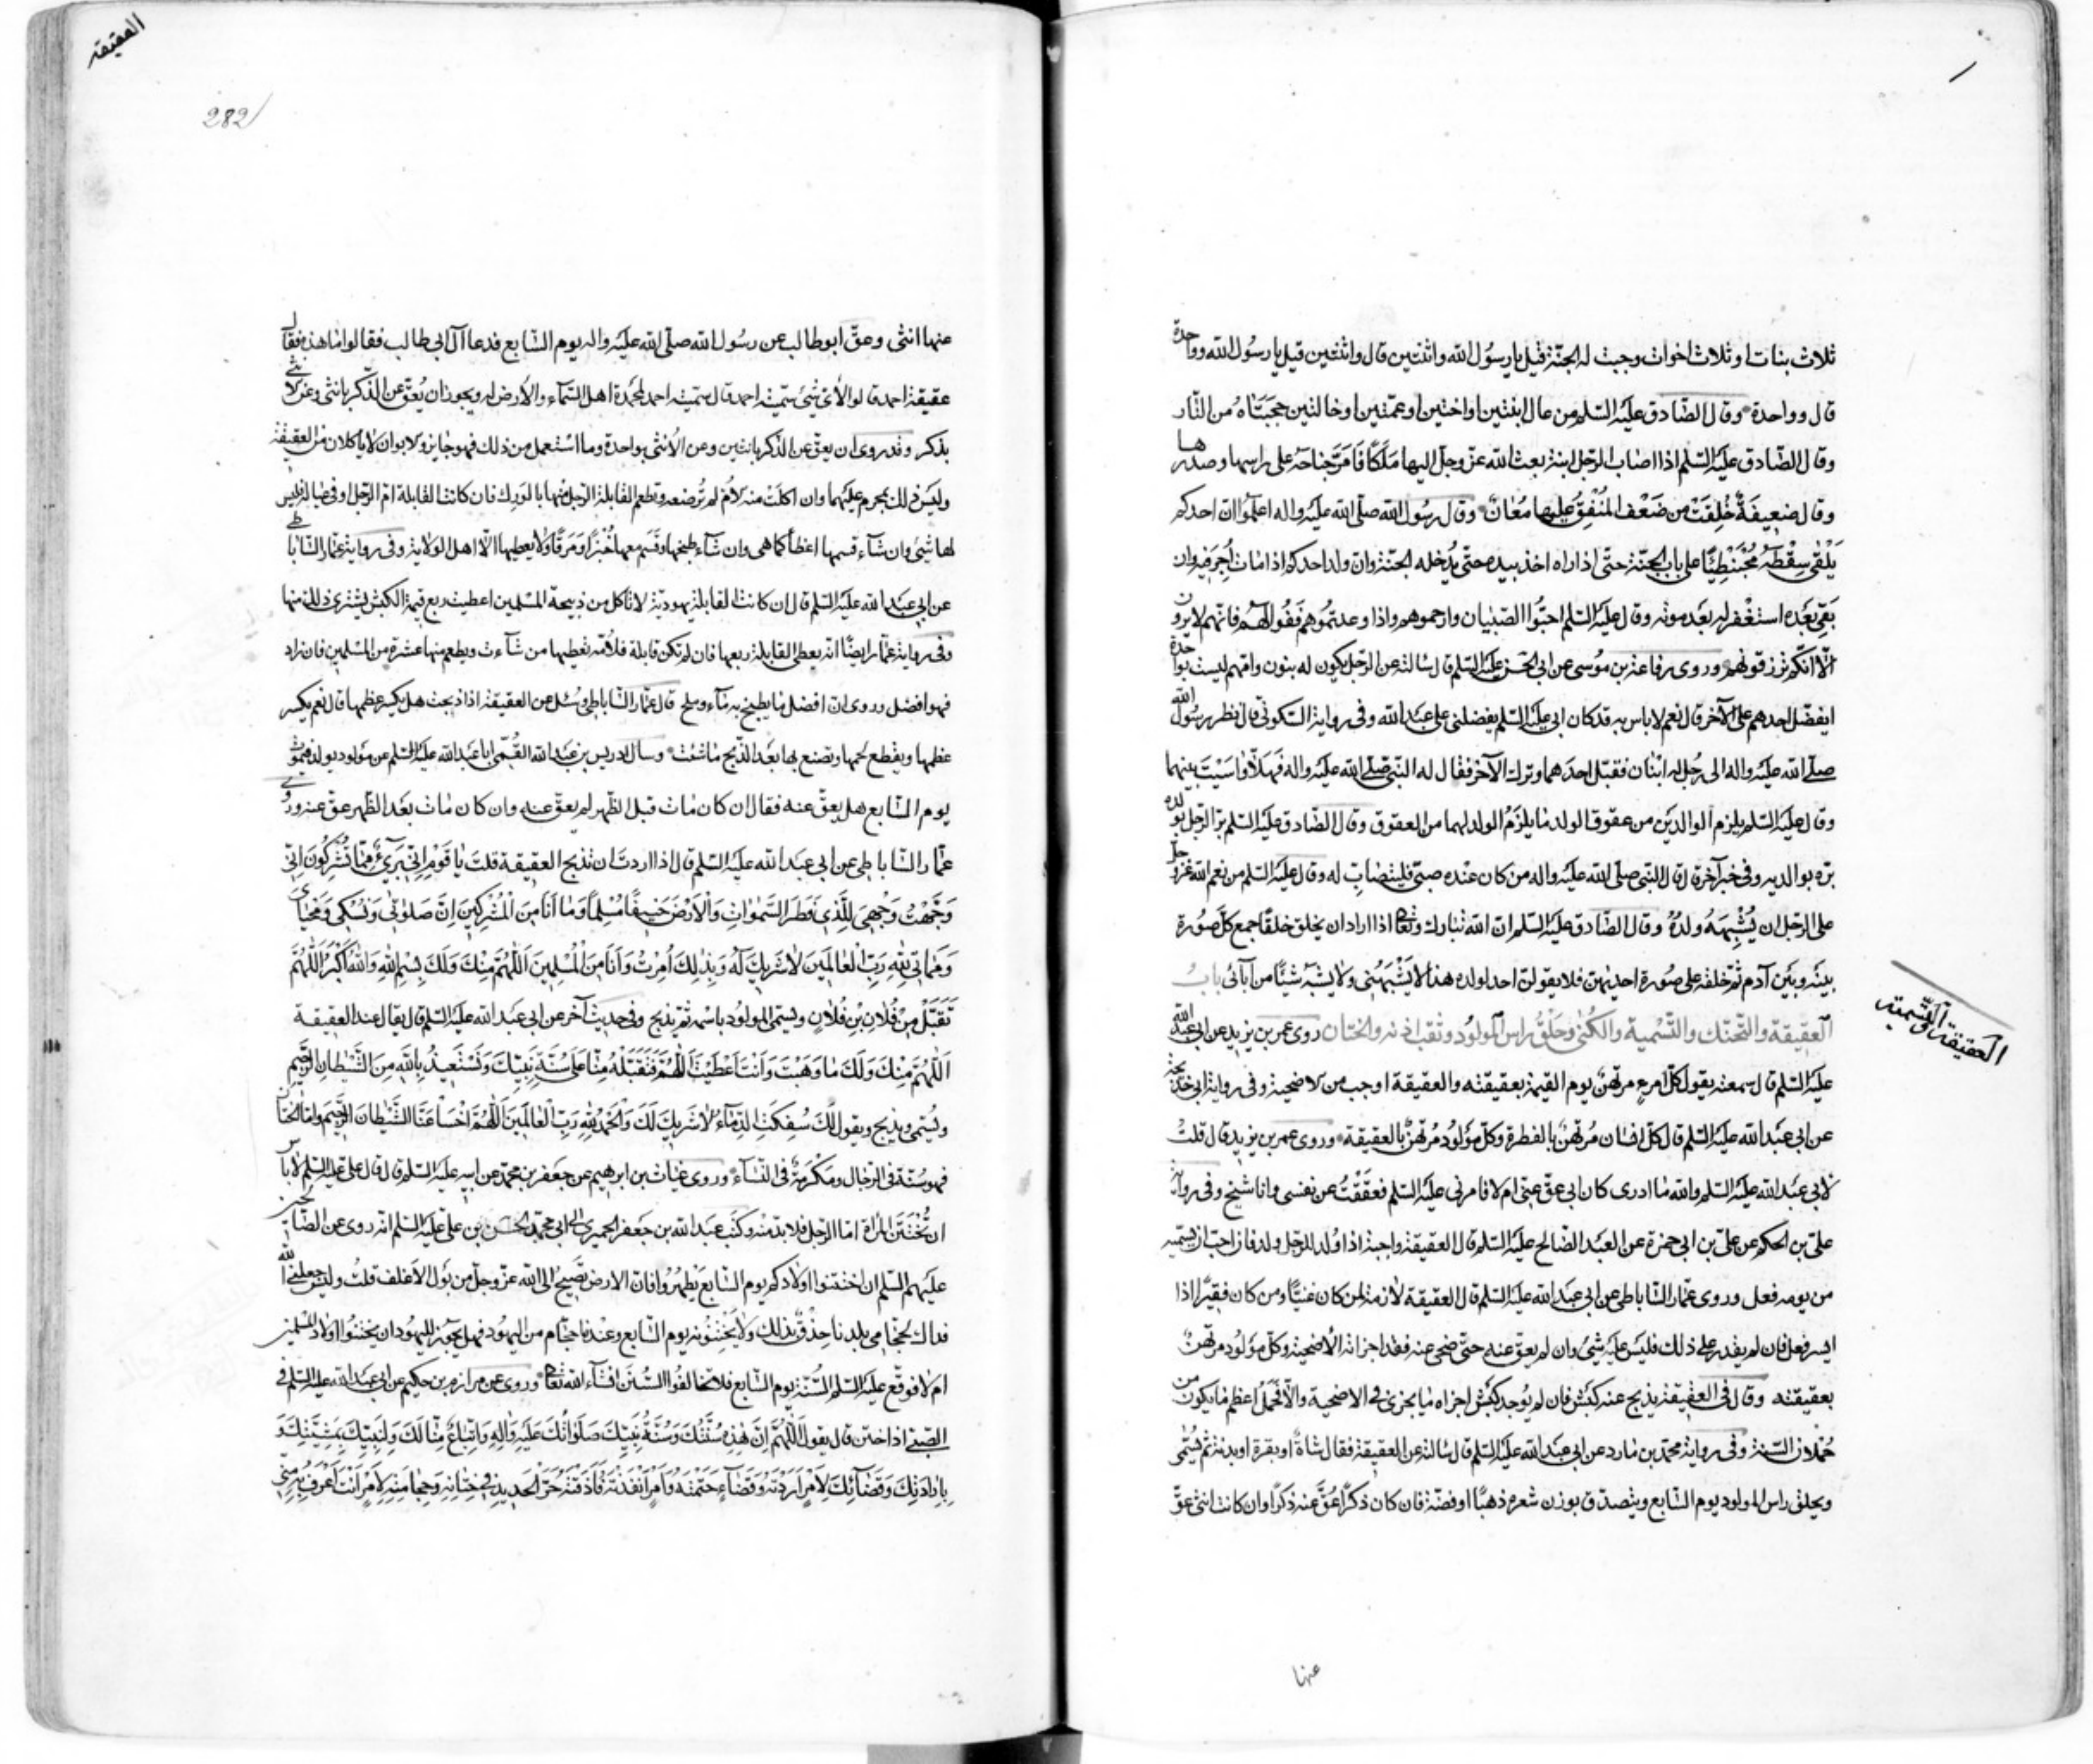 ثلاث بنات او ثلاث اخوات وجبت له الجنة قيل يا رسول الله واثنتين قال واثنتين قيل يا رسول الله وواحدة
قال وواحدة وقال الصّادق عليه السّلم من عال ابنتين او اختين او عمّتين او خالتين حجبتاه من النّار
وقال الصّادق عليه السّلم اذا اصاب الرّجل ابنة بعث الله عزّ وجلّ اليها ملكًا فامرّ جناحه على راسها وصدرها
وقال ضعيفةٌ خُلِقَتْ من ضَعْف المُنْفِقُ عليها مُعانٌ وقال رسول الله صلّى الله عليه واله اعلموا ان احدكم
يَلْقٰى سِقْطَهُ مُحْبَنْطِئًا على باب الجنّة حتّى اذا راه اخذ بيده حتّى يُدخله الجنّة وان ولد احدكم اذا مات اُجِرَ فيه وان
بَقِيَ بعده استغفر له بعد موته وقال عليه السّلم احبّوا الصّبيان وارحموهم واذا وعدتموهم فَفُوا لهم فانّهم لا يرون
الّا انّكم ترزقونهم وروى رفاعة بن موسى عن ابى الحسن عليه السّلم قال سالته عن الرّجل يكون له بنون وامّهم ليست بواحدة
ايفضّل احدهم على الآخر قال نعم لا باس به قد كان ابى عليه السّلم يفضلنى على عبد الله وفى رواية السّكونى قال نظر رسول الله
صلّى الله عليه واله الى رجُل له ابنان فقبّل احدهما وترك الآخر فقال له النّبى صلّى الله عليه واله فهلّا واسَيْتَ بينهما
وقال عليه السّلم يلزم الوالدين من عقوق الولد ما يلزم الولد لهما من العقوق وقال الصّادق عليه السّلم برّ الرّجل بولده
برّه بوالديه وفى خبر آخر قال قال النّبى صلى الله عليه واله من كان عنده صبىّ فليتصابّ له وقال عليه السّلم من نعم الله عزّ وجلّ
على الرّجل ان يُشْبِهَهُ ولدُهُ وقال الصّادق عليه السّلم ان الله تبارك وتعالى اذا اراد ان يخلق خلقًا جمع كلّ صورة
بينه وبين آدم ثم خلقه على صورة احديهن فلا يقولن احد لولده هذا لا يَشْبَهُنى ولا يشبه شيئًا من آبائى باب
العقيقة والتحنّك والتّسمية والكُنٰى وحَلْق راس المولود وثقب اذنه والختان روى عمر بن يزيد عن ابى عبد الله
عليه السّلم قال سمعته يقول كلّ امرء مرتهنٌ يوم القيمة بعقيقته والعقيقة اوجب من الاضحية وفى رواية ابى خديجة
عن ابى عبد الله عليه السّلم قال كلّ انسان مُرتهنٌ بالفطرة وكلّ مولود مُرتهنٌ بالعقيقة وروى عمر بن يزيد قال قلت
لابى عبد الله عليه السّلم والله ما ادرى كان ابى عقّ عنّى ام لا فامرنى عليه السّلم فعقَقْتُ عن نفسى وانا شيخ وفى رواية
علىّ بن الحكم عن علىّ بن ابى حمزة عن العبد الصّالح عليه السّلم قال العقيقة واجبة اذا وُلد للرّجل ولد فان احبّ ان يسمّيه
من يومه فعل وروى عمّار السّاباطى عن ابى عبد الله عليه السّلم قال العقيقة لازمة لمن كان غنيًّا ومن كان فقيرًا اذا
ايسر فعل فان لم يقدر على ذلك فليس عليه شىء وان لم يعقّ عنه حتّى ضحى عنه فقد اجزاته الأضحية وكلّ مولود مرتهنٌ
بعقيقته وقال فى العقيقة يذبح عنه كبش فان لم يُوجد كبش اجزاه ما يجزى فى الاضحية والّا فَحَمَلٌ اعظم ما يكون من
حُمْلان السّنة وفى رواية محمّد بن مارد عن ابى عبد الله عليه السّلم قال سالته عن العقيقة فقال شاةٌ او بقرة او بدنة ثم يُسمّى
ويحلق راس المولود يوم السّابع ويتصدّق بوزن شعره ذهبًا او فضّة فان كان ذكرًا عُقّ عنه ذكرًا وان كانت انثى عقّ
عنها
العقيقة والتّسمية
العقيقه
282
عنها انثى وعقّ ابو طالب عن رسول الله صلّى الله عليه واله يوم السّابع فدعا آل ابى طالب فقالوا ما هذه فقال
عقيقة احمد قالوا لأىّ شىء سمّيته احمد قال سمّيته احمد لمحمدة اهل السّماء والأرض له ويجوز ان يُعقّ عن الذّكر بانثى وعن الانثى
بذكر وقد روى ان يعقّ عن الذكر بانثيين وعن الأنثى بواحدة وما استعمل من ذلك فهو جايز والابوان لا ياكلان من العقيقة
وليس ذلك بمحرم عليهما وان اكلت منه الأم لم تُرضعه وتطعم القابلة الرّجل منها بالورك فان كانت القابلة امّ الرّجل او فى عياله فليس
لها شىء وان شآء قسمها اعضآء كما هى وان شآء طبخها وقسم معها خُبْزًا ومَرَقًا ولا يعطيها الّا اهل الولاية وفى رواية عمّار السّاباطى
عن ابى عبد الله عليه السّلم قال ان كانت القابلة يهوديّة لا تاكل من ذبيحة المسلمين اعطيت ربع قيمة الكبش يشترى ذلك منها
وفى رواية عمّار ايضًا انّه يعطى القابلة ربعها فان لم تكن قابلة فلأمّه تعطيها من شآءت ويطعم منها عشرة من المسلمين فان زاد
فهو افضل وروى ان افضل ما يطبخ به مآء وملح قال عمّار السّاباطى وسُئل عن العقيقة اذا ذبحت هل يكسر عظمها قال نعم يكسر
عظمها ويقطع لحمها وتصنع بها بعد الذّبح ما شئت وسال ادريس بن عبد الله القُمّى ابا عبد الله عليه السّلم عن مولود يولد فيموت
يوم السّابع هل يعقّ عنه فقال ان كان مات قبل الظّهر لم يعقّ عنه وان كان مات بعد الظّهر عقّ عنه وروى
عمّار السّاباطى عن ابى عبد الله عليه السّلم قال اذا اردت ان تذبح العقيقة قلت يا قَوْمِ اِنّى بَرىءٌ مِمّا تُشْرِكُونَ اِنّى
وَجَّهْتُ وَجْهِىَ لِلَّذى فَطَرَ السَّمٰوٰاتِ وَالْاَرْضَ حَنيفًا مُسْلِمًا وَمٰا اَنَا مِنَ الْمُشْرِكينَ اِنَّ صَلوٰتى وَنُسُكى وَمَحْيٰاىَ
وَمَمٰاتى لِلّٰهِ رَبِّ الْعٰالَمينَ لٰا شَريكَ لَهُ وَبِذٰلِكَ اُمِرْتُ وَاَنَا مِنَ الْمُسْلِمينَ اَللّٰهُمَّ مِنْكَ وَلَكَ بِسْمِ اللّٰهِ وَاللّٰهُ اَكْبَرُ اَللّٰهُمَّ
تَقَبَّلْ مِنْ فُلٰانِ بْنِ فُلٰانٍ ويسمّى المولود باسمه ثم يذبح وفى حديث آخر عن ابى عبد الله عليه السّلم قال يقال عند العقيقة
اَللّٰهُمَّ مِنْكَ وَلَكَ مٰا وَهَبْتَ وَاَنْتَ اَعْطَيْتَ اَللّٰهُمَّ فَتَقَبَّلْهُ مِنّٰا عَلىٰ سُنَّةِ نَبِيِّكَ وَنَسْتَعيذُ بِاللّٰهِ مِنَ الشَّيْطٰانِ الرَّجيمِ
ويُسمّى ويذبح ويقول لَكَ سُفِكَتِ الدِّمٰآءُ لٰا شَريكَ لَكَ وَالْحَمْدُ لِلّٰهِ رَبِّ الْعٰالَمينَ اَللّٰهُمَّ اخْسَأْ عَنَّا الشَّيْطٰانَ الرَّجيمَ وامّا الختان
فهو سُنّة فى الرّجال ومَكْرَمَةٌ فى النّسآء وروى غياث بن ابرهيم عن جعفر بن محمّد عن ابيه عليه السّلم قال قال علىّ عليه السّلم لا باس
ان لا تُخْتَتَن المرأة امّا الرّجل فلا بد منه وكتب عبد الله بن جعفر الحميرى الى ابى محمّد الحسن بن علىّ عليه السّلم انه روى عن الصّالحين
عليهم السّلم ان اختنوا اولادكم يوم السّابع يَطهروا فان الارض تَضِجّ الى الله عزّ وجلّ من بول الأغلف قلت وليس جعلنى الله
فداك لحجّامى بلدنا حِذْقٌ بذلك ولا يَخْتِنُونه يوم السّابع وعندنا حجّام من اليهود فهل يجوز لليهود ان يختنوا اولاد المسلمين
ام لا فوقّع عليه السّلم السُّنّة يوم السّابع فلا تخالفوا السُّنَن انشآء الله تعالى وروى عن مرازم بن حكيم عن ابى عبد الله عليه السّلم فى
الصّبى اذا ختن قال يقول اَللّٰهُمَّ اِنَّ هٰذِهِ سُنَّتُكَ وَسُنَّةُ نَبِيِّكَ صَلَوٰاتُكَ عَلَيْهِ وَاٰلِهِ وَاتِّبٰاعٌ مِنّٰا لَكَ وَلِنَبِيِّكَ بِمَشِيَّتِكَ وَ
بِاِرٰادَتِكَ وَقَضٰآئِكَ لِاَمْرٍ اَرَدْتَهُ وَقَضٰآءٍ حَتَمْتَهُ وَاَمْرٍ اَنْفَذْتَهُ فَاَذَقْتَهُ حَرَّ الْحَديدِ فى خِتٰانِهِ وَحِجٰامَتِهِ لِاَمْرٍ اَنْتَ اَعْرَفُ بِهِ مِنّى